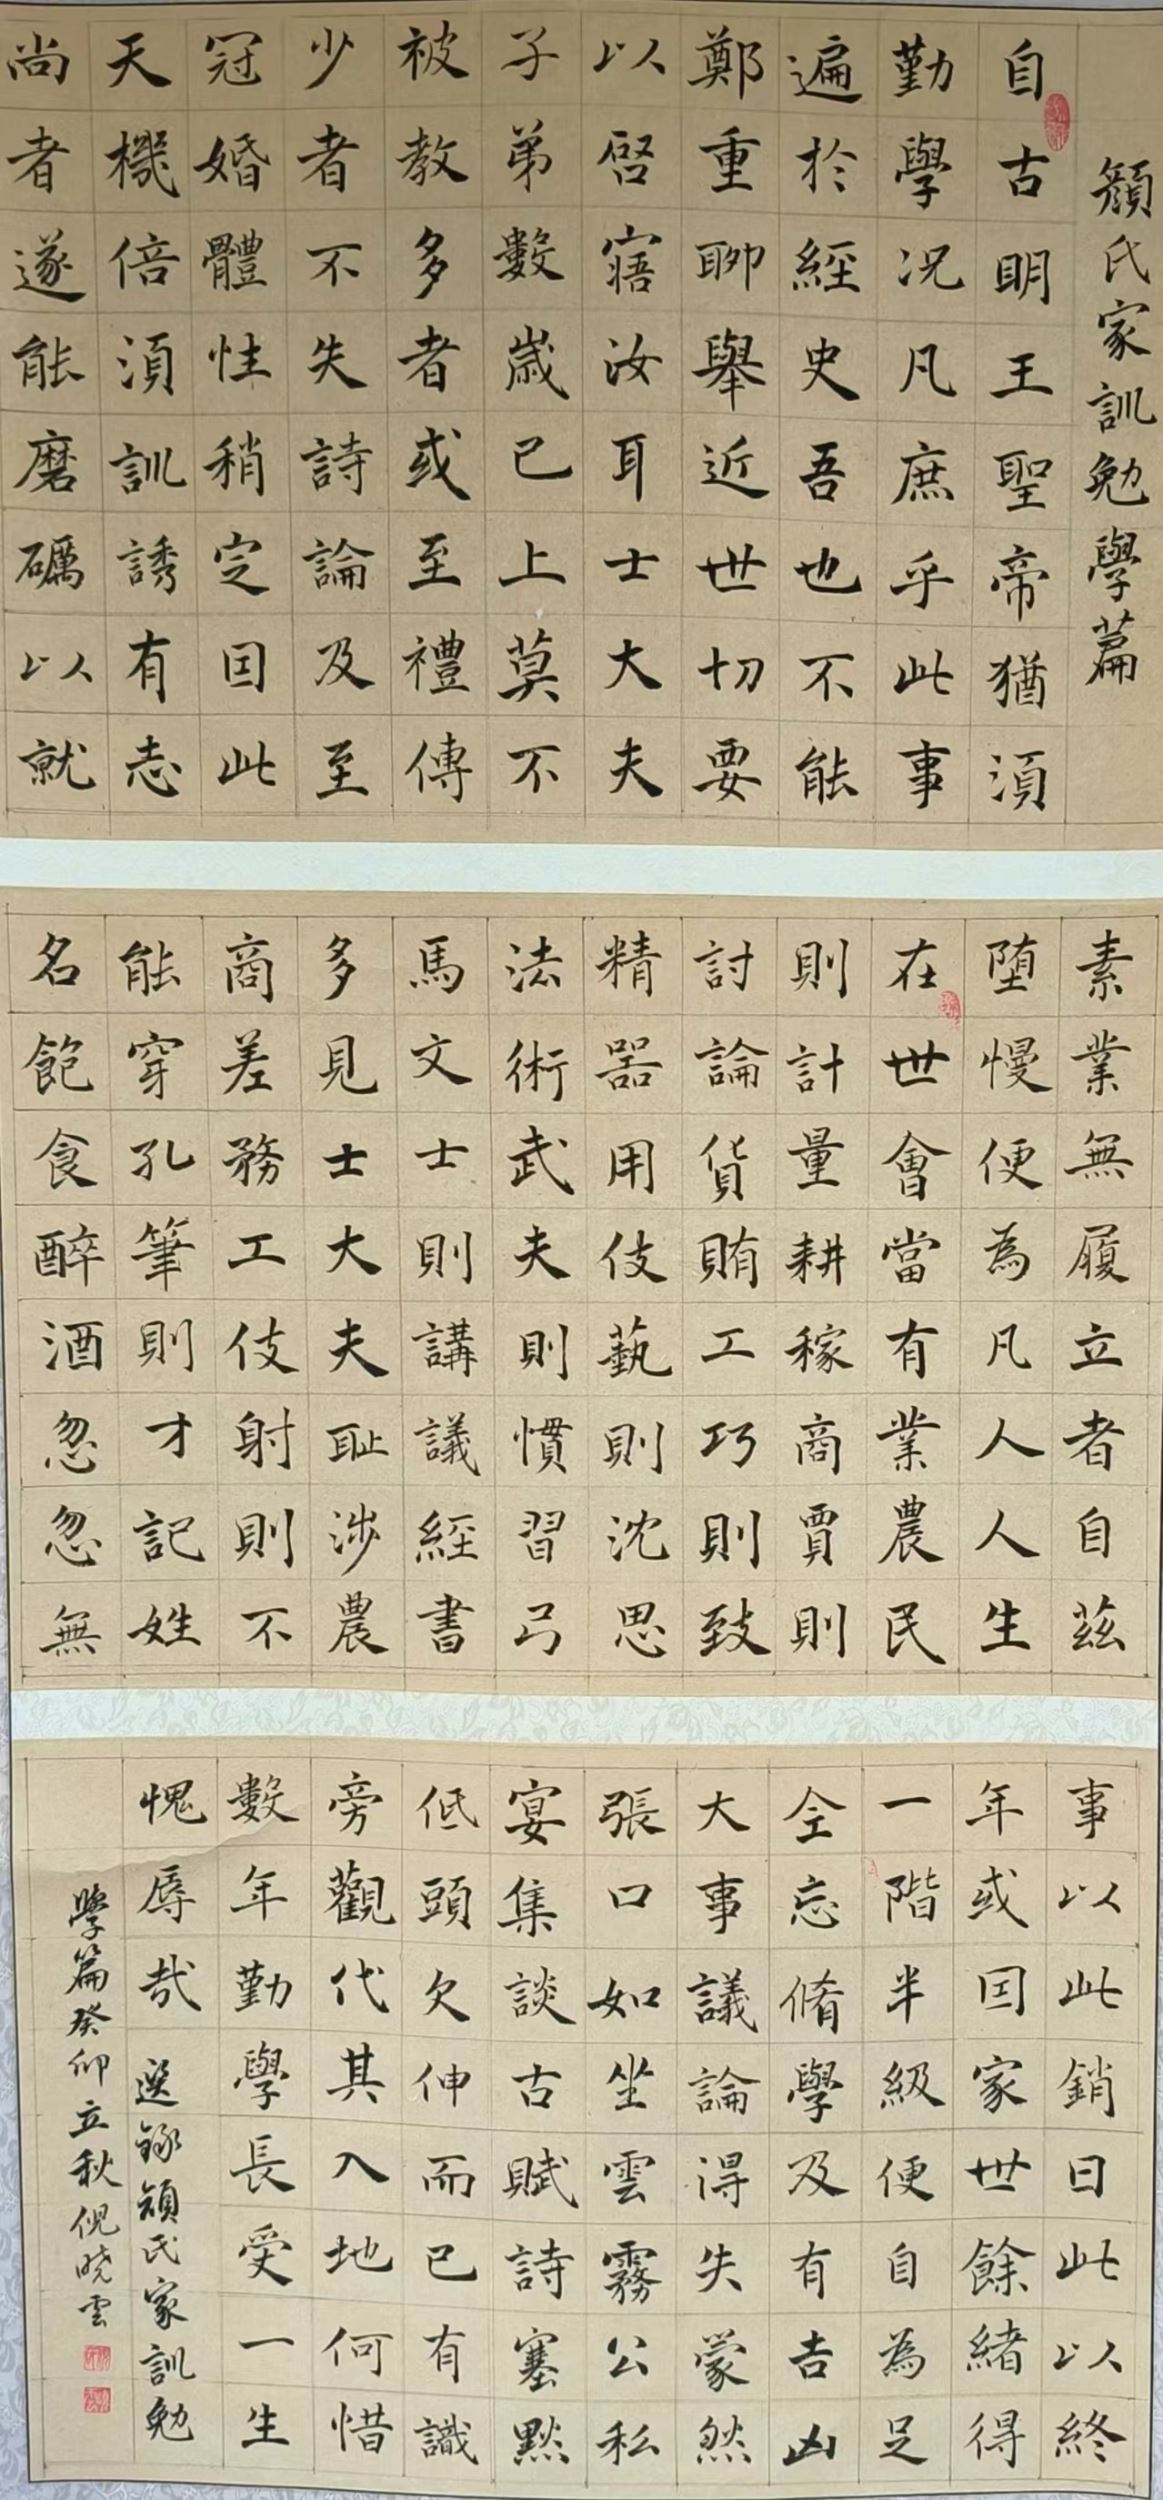 顏氏家訓勉學篇
自古明王聖帝猶須
勤學况凡庶乎此事
遍於經史吾也不能
鄭重聊舉近世切要
以啓寤汝耳士大夫
子弟數歲已上莫不
被教多者或至禮傳
少者不失詩論及至
冠婚體性稍定因此
天機倍須訓誘有志
尚者遂能磨礪以就
素業無履立者自茲
堕慢便為凡人人生
在世會當有業農民
則計量耕稼商賈則
討論貨賄工巧則致
精器用伎藝則沈思
法術武夫則慣習弓
馬文士則講議經書
多見士大夫耻涉農
商差務工伎射則不
能穿孔筆則才記姓
名飽食醉酒忽忽無
事以此銷日此以終
年或因家世餘緒得
一階半級便自為足
全忘脩學及有吉凶
大事議論得失蒙然
張口如坐雲霧公私
宴集談古賦詩塞默
低頭欠伸而已有識
旁觀代其入地何惜
數年勤學長受一生
愧辱哉 選錄顏氏家訓勉
學篇癸卯立秋倪曉雲